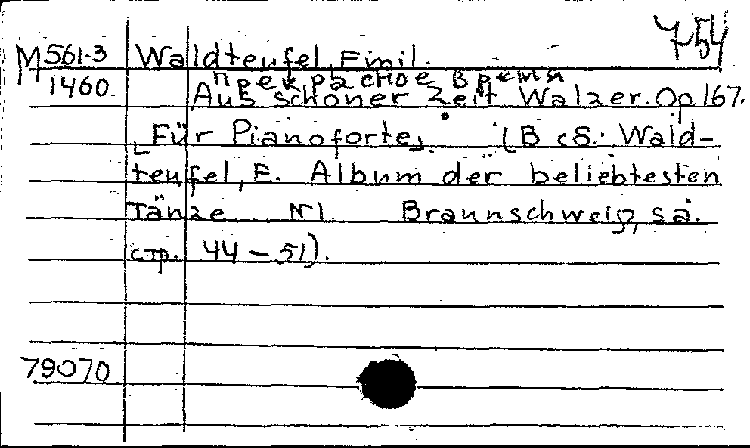 754
M 561-3 Waldteufel, Emil.
прекрасное время
1460 Aus schöner Zeit Walzer. Op 167.
[Für Pianoforte]. (В сб.: Wald-
teufel, E. Album der beliebtesten
Tänze N1 Braunschweig, s.a.
стр. 44 – 51).
79070